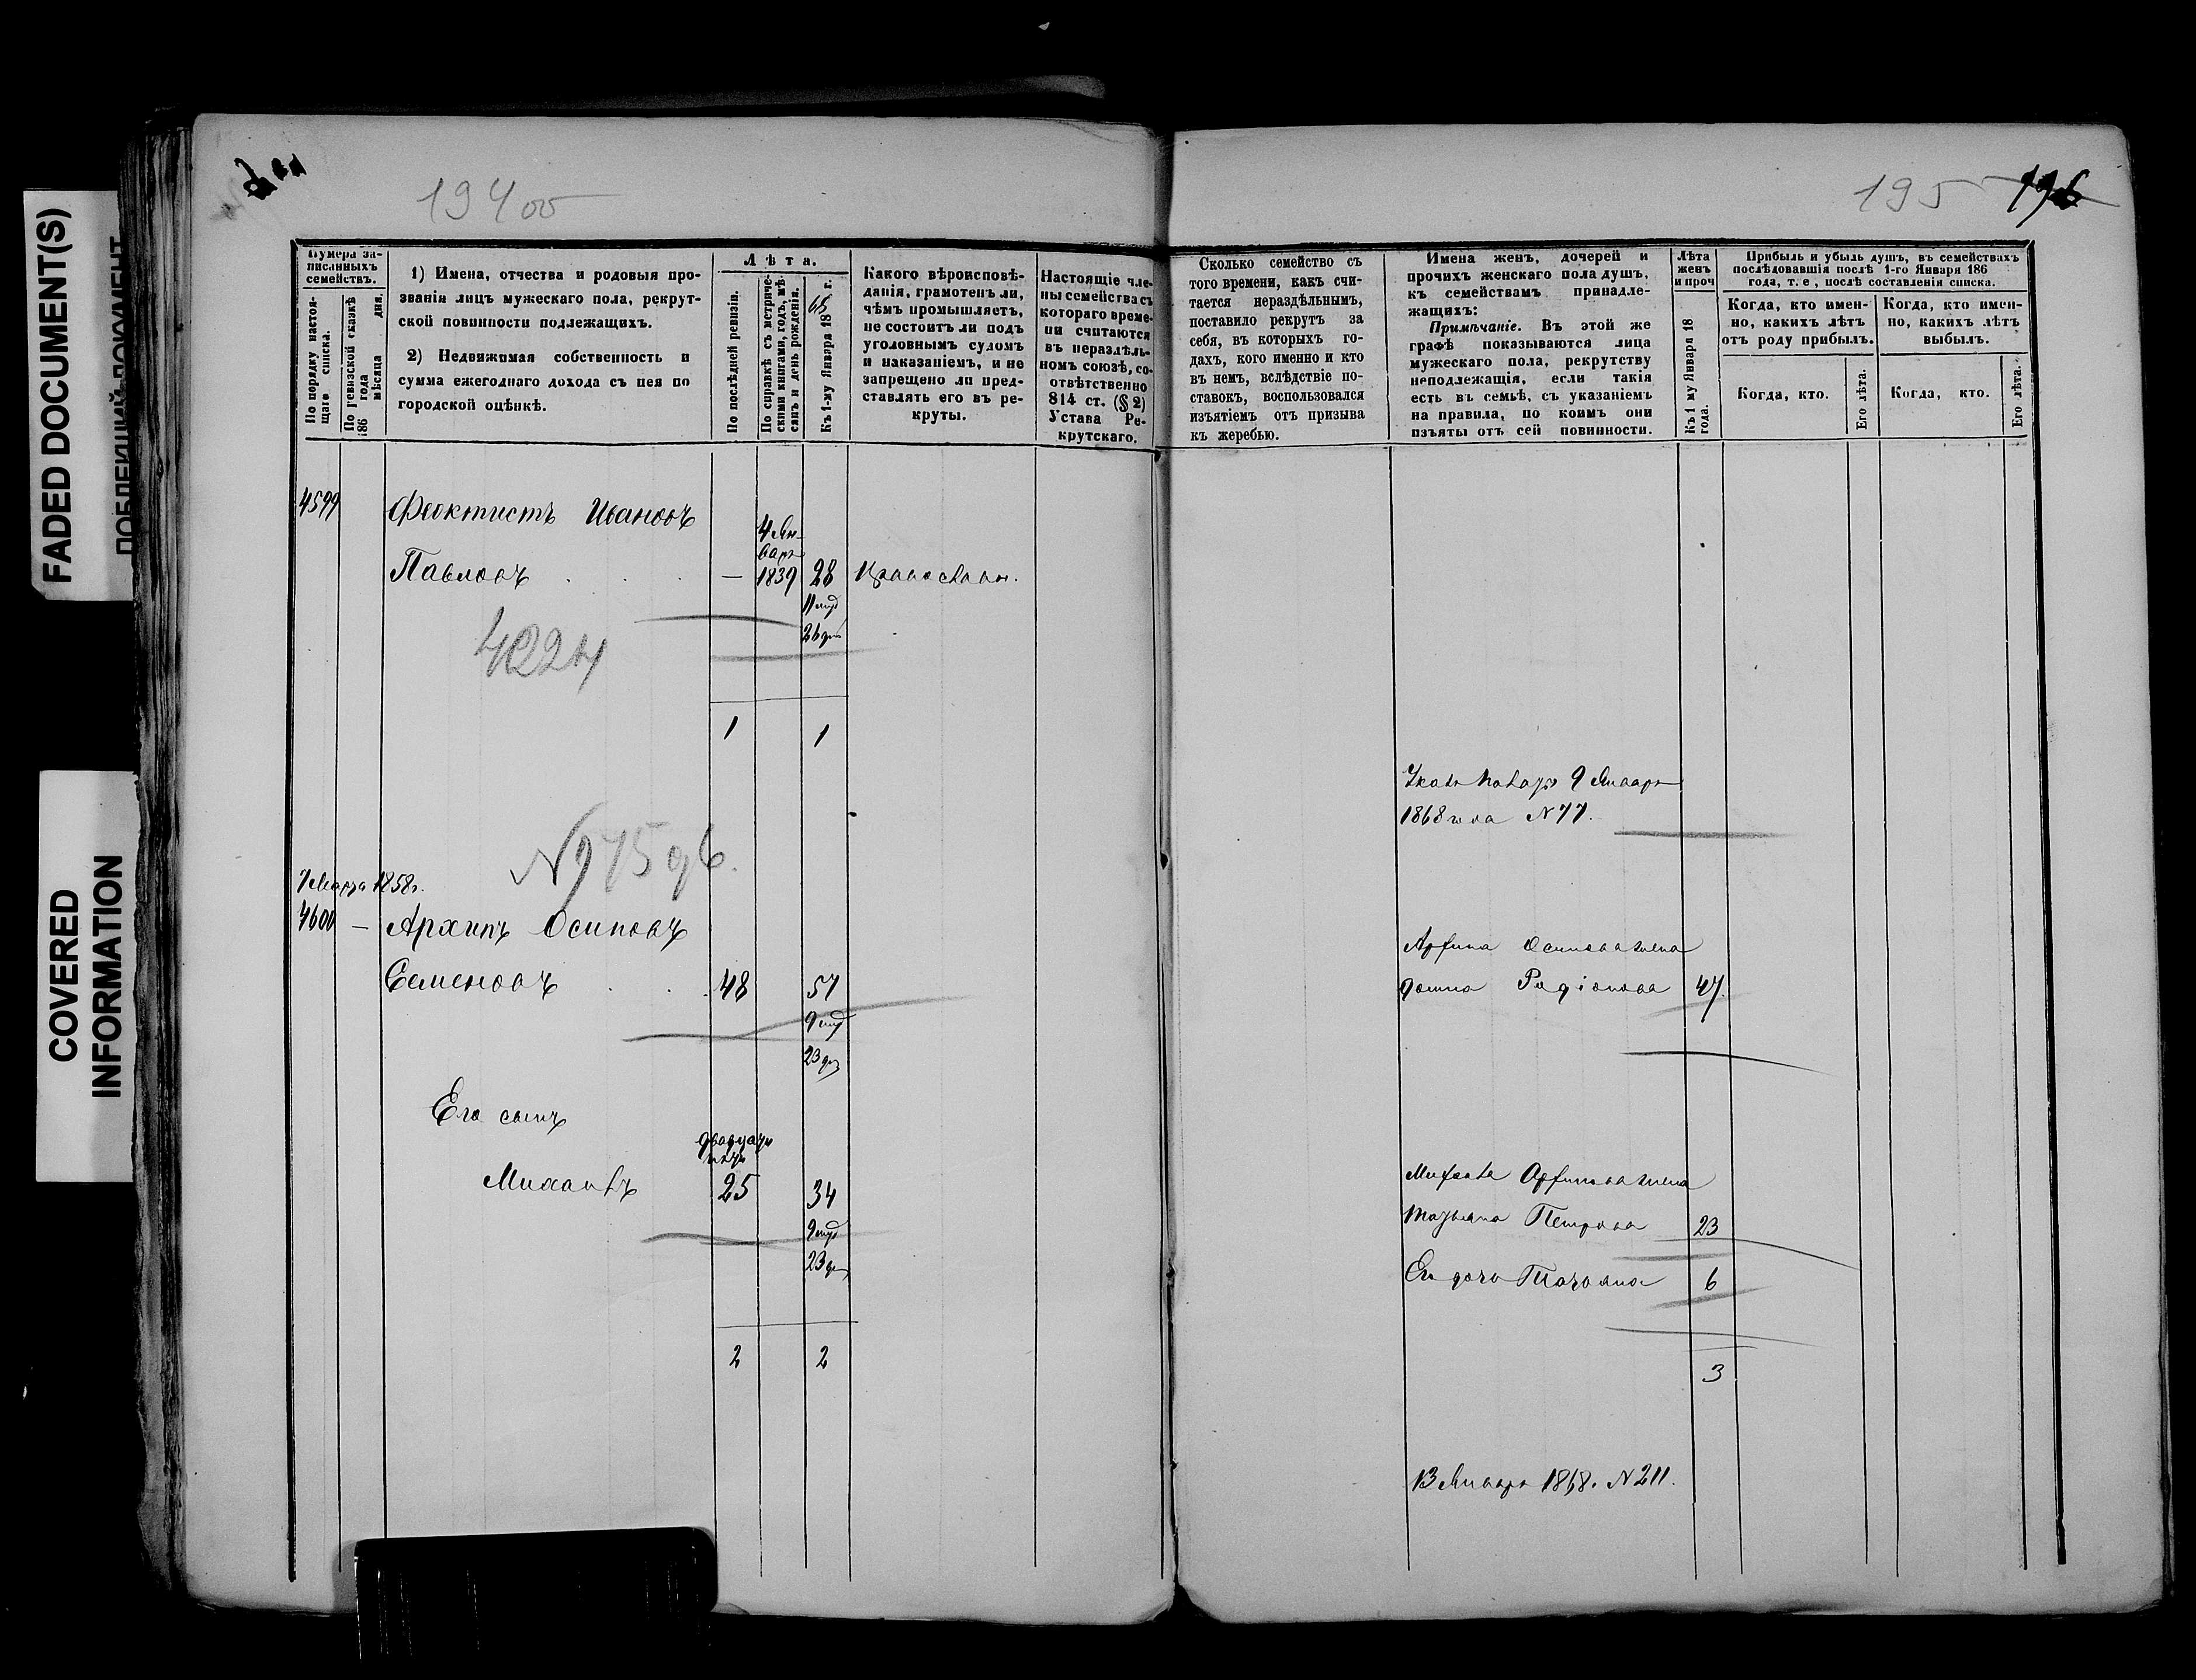 FADED DOCUMENT(S)
COVERED
INFORMATION
194 об
195
196
Нумера за-
писанныхъ
семействъ.
По порядку настоя-
щаго списка.
По ревизской сказкѣ
186 года
мѣсяца дня.
1) Имена, отчества и родовыя про-
званія лицъ мужескаго пола, рекрут-
ской повинности подлежащихъ.
2) Недвижимая собственность и
сумма ежегоднаго дохода съ нея по
городской оцѣнкѣ.
Лѣта.
По послѣдней ревизіи.
По справкѣ съ метриче-
скими книгами, годъ, мѣ-
сяцъ и день рожденія.
Къ 1-му Января 1868 г.
Какого вѣроисповѣ-
данія, грамотенъ ли,
чѣмъ промышляетъ,
не состоитъ ли подъ
уголовнымъ судомъ
и наказаніемъ, и не
запрещено ли пред-
ставлять его въ ре-
круты.
Настоящіе чле-
ны семейства съ
котораго време-
ни считаются
въ нераздѣль-
номъ союзѣ, со-
отвѣтственно
814 ст. (§ 2)
Устава Ре-
крутскаго.
Сколько семейство съ
того времени, какъ счи-
тается нераздѣльнымъ,
поставило рекрутъ за
себя, въ которыхъ го-
дахъ, кого именно и кто
въ немъ, вслѣдствіе по-
ставокъ, воспользовался
изъятіемъ отъ призыва
къ жеребью.
Имена женъ, дочерей и
прочихъ женскаго пола душъ,
къ семействамъ принадле-
жащихъ:
Примѣчаніе. Въ этой же
графѣ показываются лица
мужескаго пола, рекрутству
неподлежащія, если такія
есть въ семьѣ, съ указаніемъ
на правила, по коимъ они
изъяты отъ сей повинности.
Лѣта
женъ
и проч
Къ 1 му Января 18
года.
Прибыль и убыль душъ, въ семействахъ
послѣдовавшія послѣ 1-го Января 186
года, т. е., послѣ составленія списка.
Когда, кто имен-
но, какихъ лѣтъ
отъ роду прибылъ.
Когда, кто имен-
но, какихъ лѣтъ
выбылъ.
Когда, кто.
Его лѣта.
Когда, кто.
Его лѣта.
4599 Феоктистъ Ивановъ
4 Ян-
варя
Павловъ — 1839 28 Православн.
11 мѣс
26 дн
4224
1 1
Указъ Палаты 9 Января
1868 года N 77.
N 975 дб.
7 Марта 1858 г.
4600 — Архипъ Осиповъ
Семеновъ 48 57
9 мѣс
23 дн
Архипа Осипова жена
Домна Родіонова 47.
Его сынъ
двадцать
пять
Михаилъ 25 34
9 мѣс
23 дн
Михаила Архипова жена
Татьяна Петрова 23
Ея дочь Татьяна 6
2 2
3
13 Января 1868. N 211.